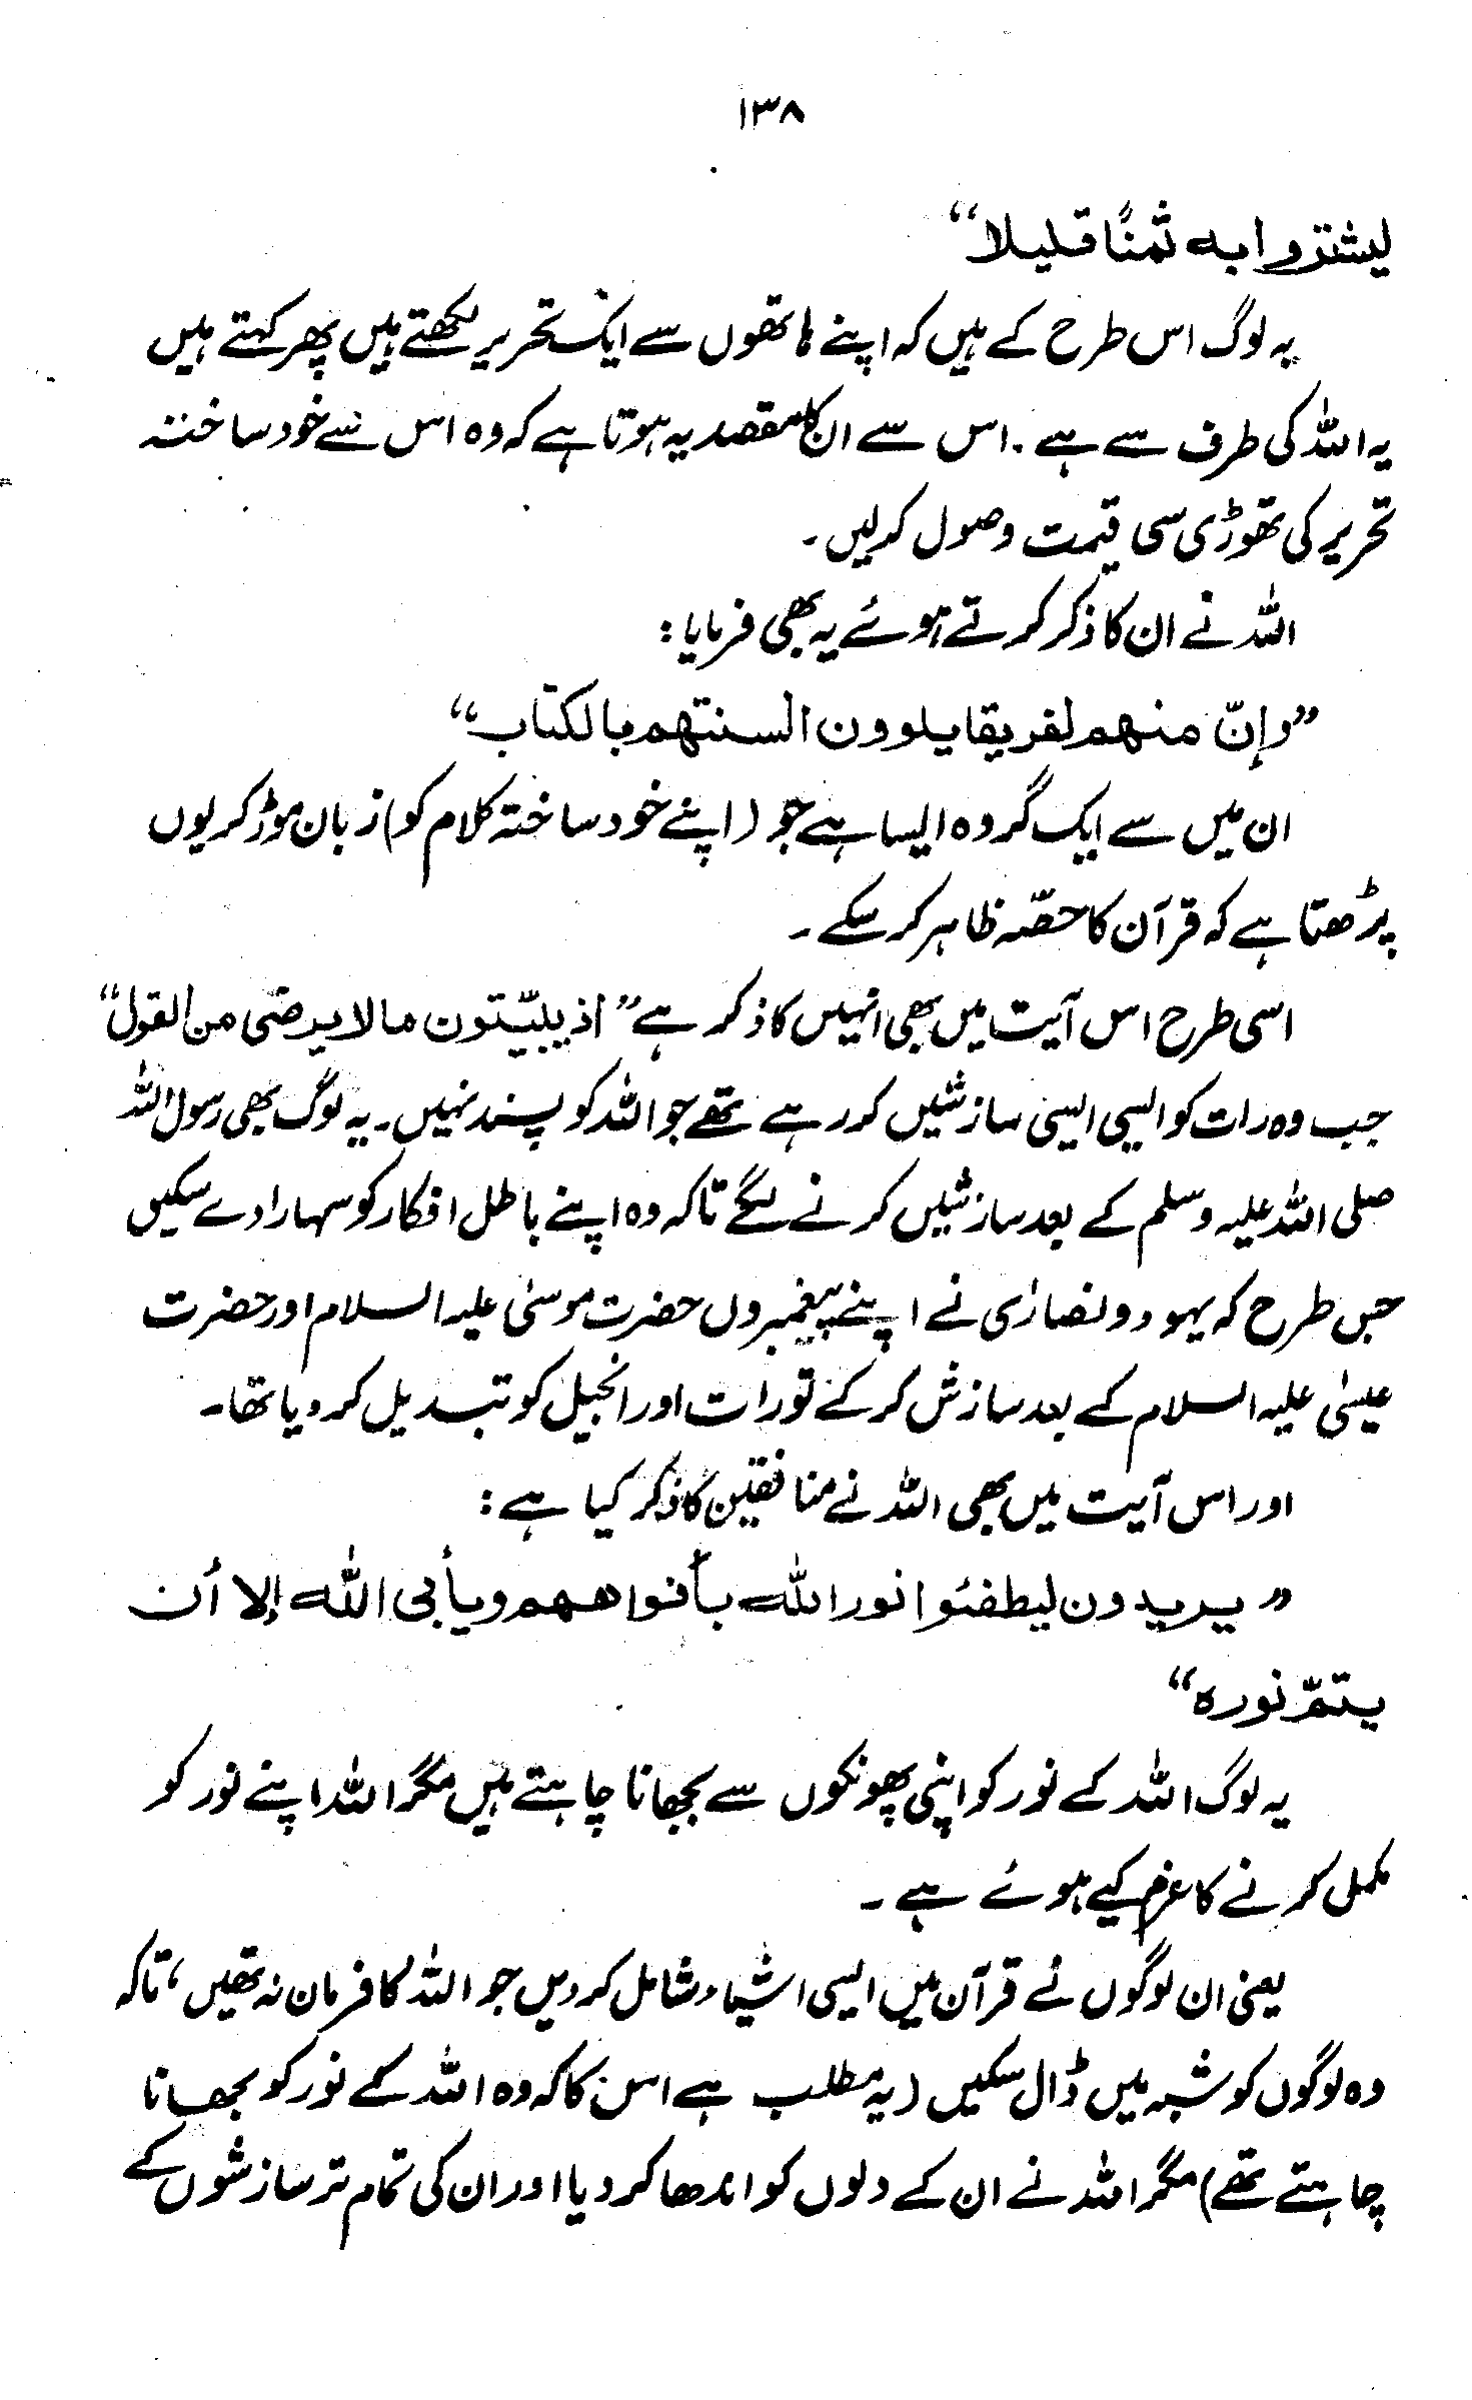 ۱۳۸
لیشتروا به ثمنًا قلیلا“
یہ لوگ اس طرح کے ہیں کہ اپنے ہاتھوں سے ایک تحریر لکھتے ہیں پھر کہتے ہیں
یہ اللہ کی طرف سے ہے۔ اس سے ان کا مقصد یہ ہوتا ہے کہ وہ اس سے خود ساختہ
تحریر کی تھوڑی سی قیمت وصول کر لیں۔
اللہ نے ان کا ذکر کرتے ہوئے یہ بھی فرمایا:
”وإنّ منهم لفریقا یلوون السنتهم بالکتاب“
ان میں سے ایک گروہ ایسا ہے جو (اپنے خود ساختہ کلام کو) زبان موڑ کر یوں
پڑھتا ہے کہ قرآن کا حصّہ ظاہر کر سکے۔
اسی طرح اس آیت میں بھی انہیں کا ذکر ہے ”اذ یبیّتون مالا یرضی من القول“
جب وہ رات کو ایسی ایسی سازشیں کر رہے تھے جو اللہ کو پسند نہیں۔ یہ لوگ بھی رسول اللہ
صلی اللہ علیہ وسلم کے بعد سازشیں کرنے لگے تاکہ وہ اپنے باطل افکار کو سہارا دے سکیں
جس طرح کہ یہود و نصاریٰ نے اپنے پیغمبروں حضرت موسیٰ علیہ السلام اور حضرت
عیسیٰ علیہ السلام کے بعد سازش کر کے تورات اور انجیل کو تبدیل کر دیا تھا۔
اور اس آیت میں بھی اللہ نے منافقین کا ذکر کیا ہے:
”یریدون لیطفئوا نور اللّٰه بأفواههم ویأبی اللّٰه إلا أن
یتمّ نوره“
یہ لوگ اللہ کے نور کو اپنی پھونکوں سے بجھانا چاہتے ہیں مگر اللہ اپنے نور کو
مکمل کرنے کا عزم کیے ہوئے ہے۔
یعنی ان لوگوں نے قرآن میں ایسی اشیاء شامل کر دیں جو اللہ کا فرمان نہ تھیں، تاکہ
وہ لوگوں کو شبہ میں ڈال سکیں (یہ مطلب ہے اس کا کہ وہ اللہ کے نور کو بجھانا
چاہتے تھے) مگر اللہ نے ان کے دلوں کو اندھا کر دیا اور ان کی تمام تر سازشوں کے